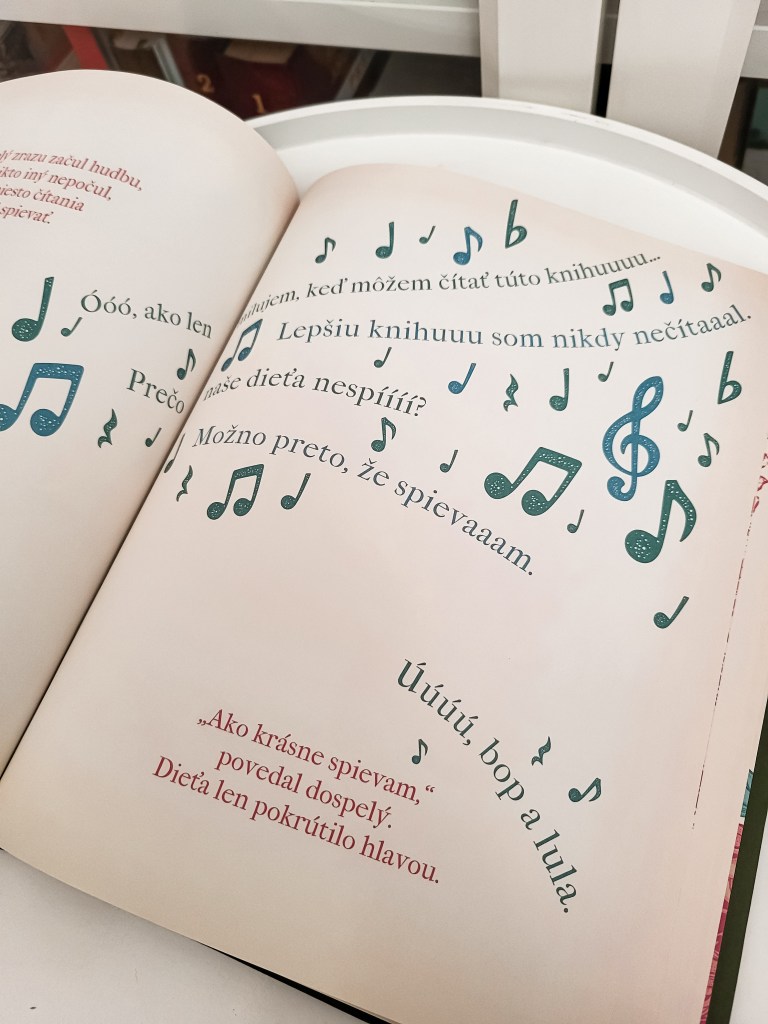 zrazu začul hudbu,
iný nepočul,
čítania
spievať.
Óóó, ako len
Prečo
keď môžem čítať túto knihuuuu...
Lepšiu knihuuu som nikdy nečítaaal.
naše dieťa nespíííí?
Možno preto, že spievaaam.
Úúúú, bop a lula.
„Ako krásne spievam,“
povedal dospelý.
Dieťa len pokrútilo hlavou.
2
1